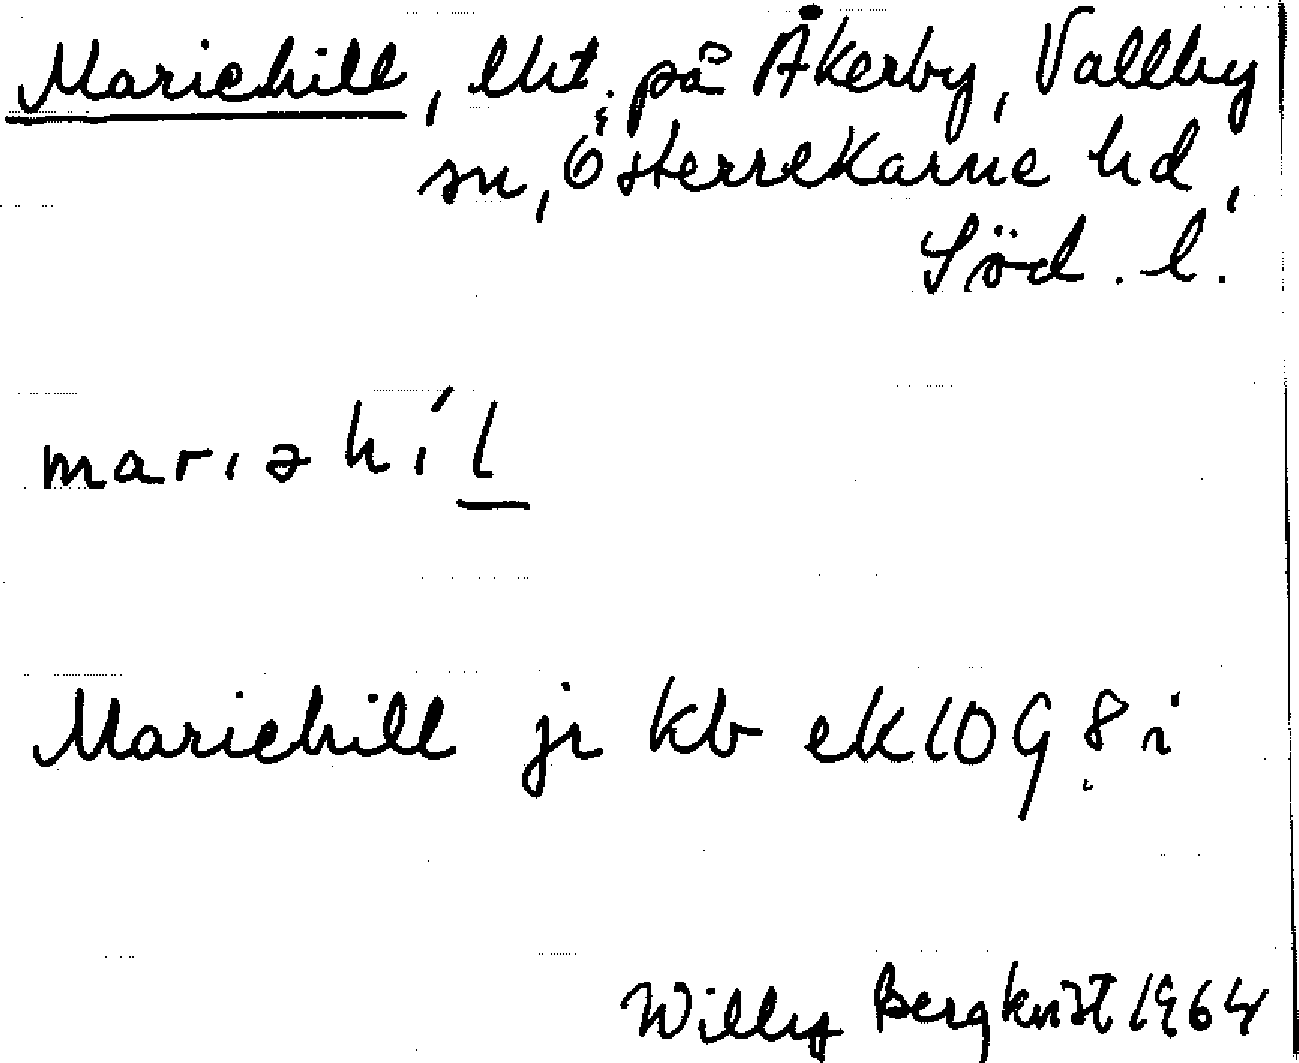 Mariehill, lht. på Åkerby, Vallby
sn, Österrekarne hd,
Söd. l.
marıəhı́l
Mariehill jr kb ek 10G 8i
Willy Bergkvist 1964